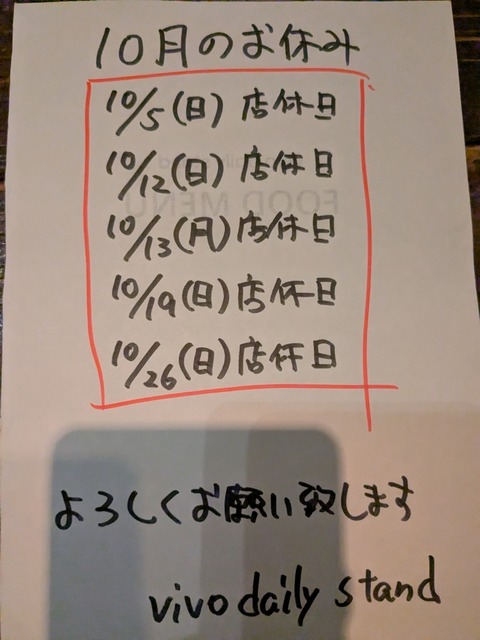 10月のお休み
10/5(日)店休日
10/12(日)店休日
10/13(月)店休日
10/19(日)店休日
10/26(日)店休日
よろしくお願い致します
vivo daily stand